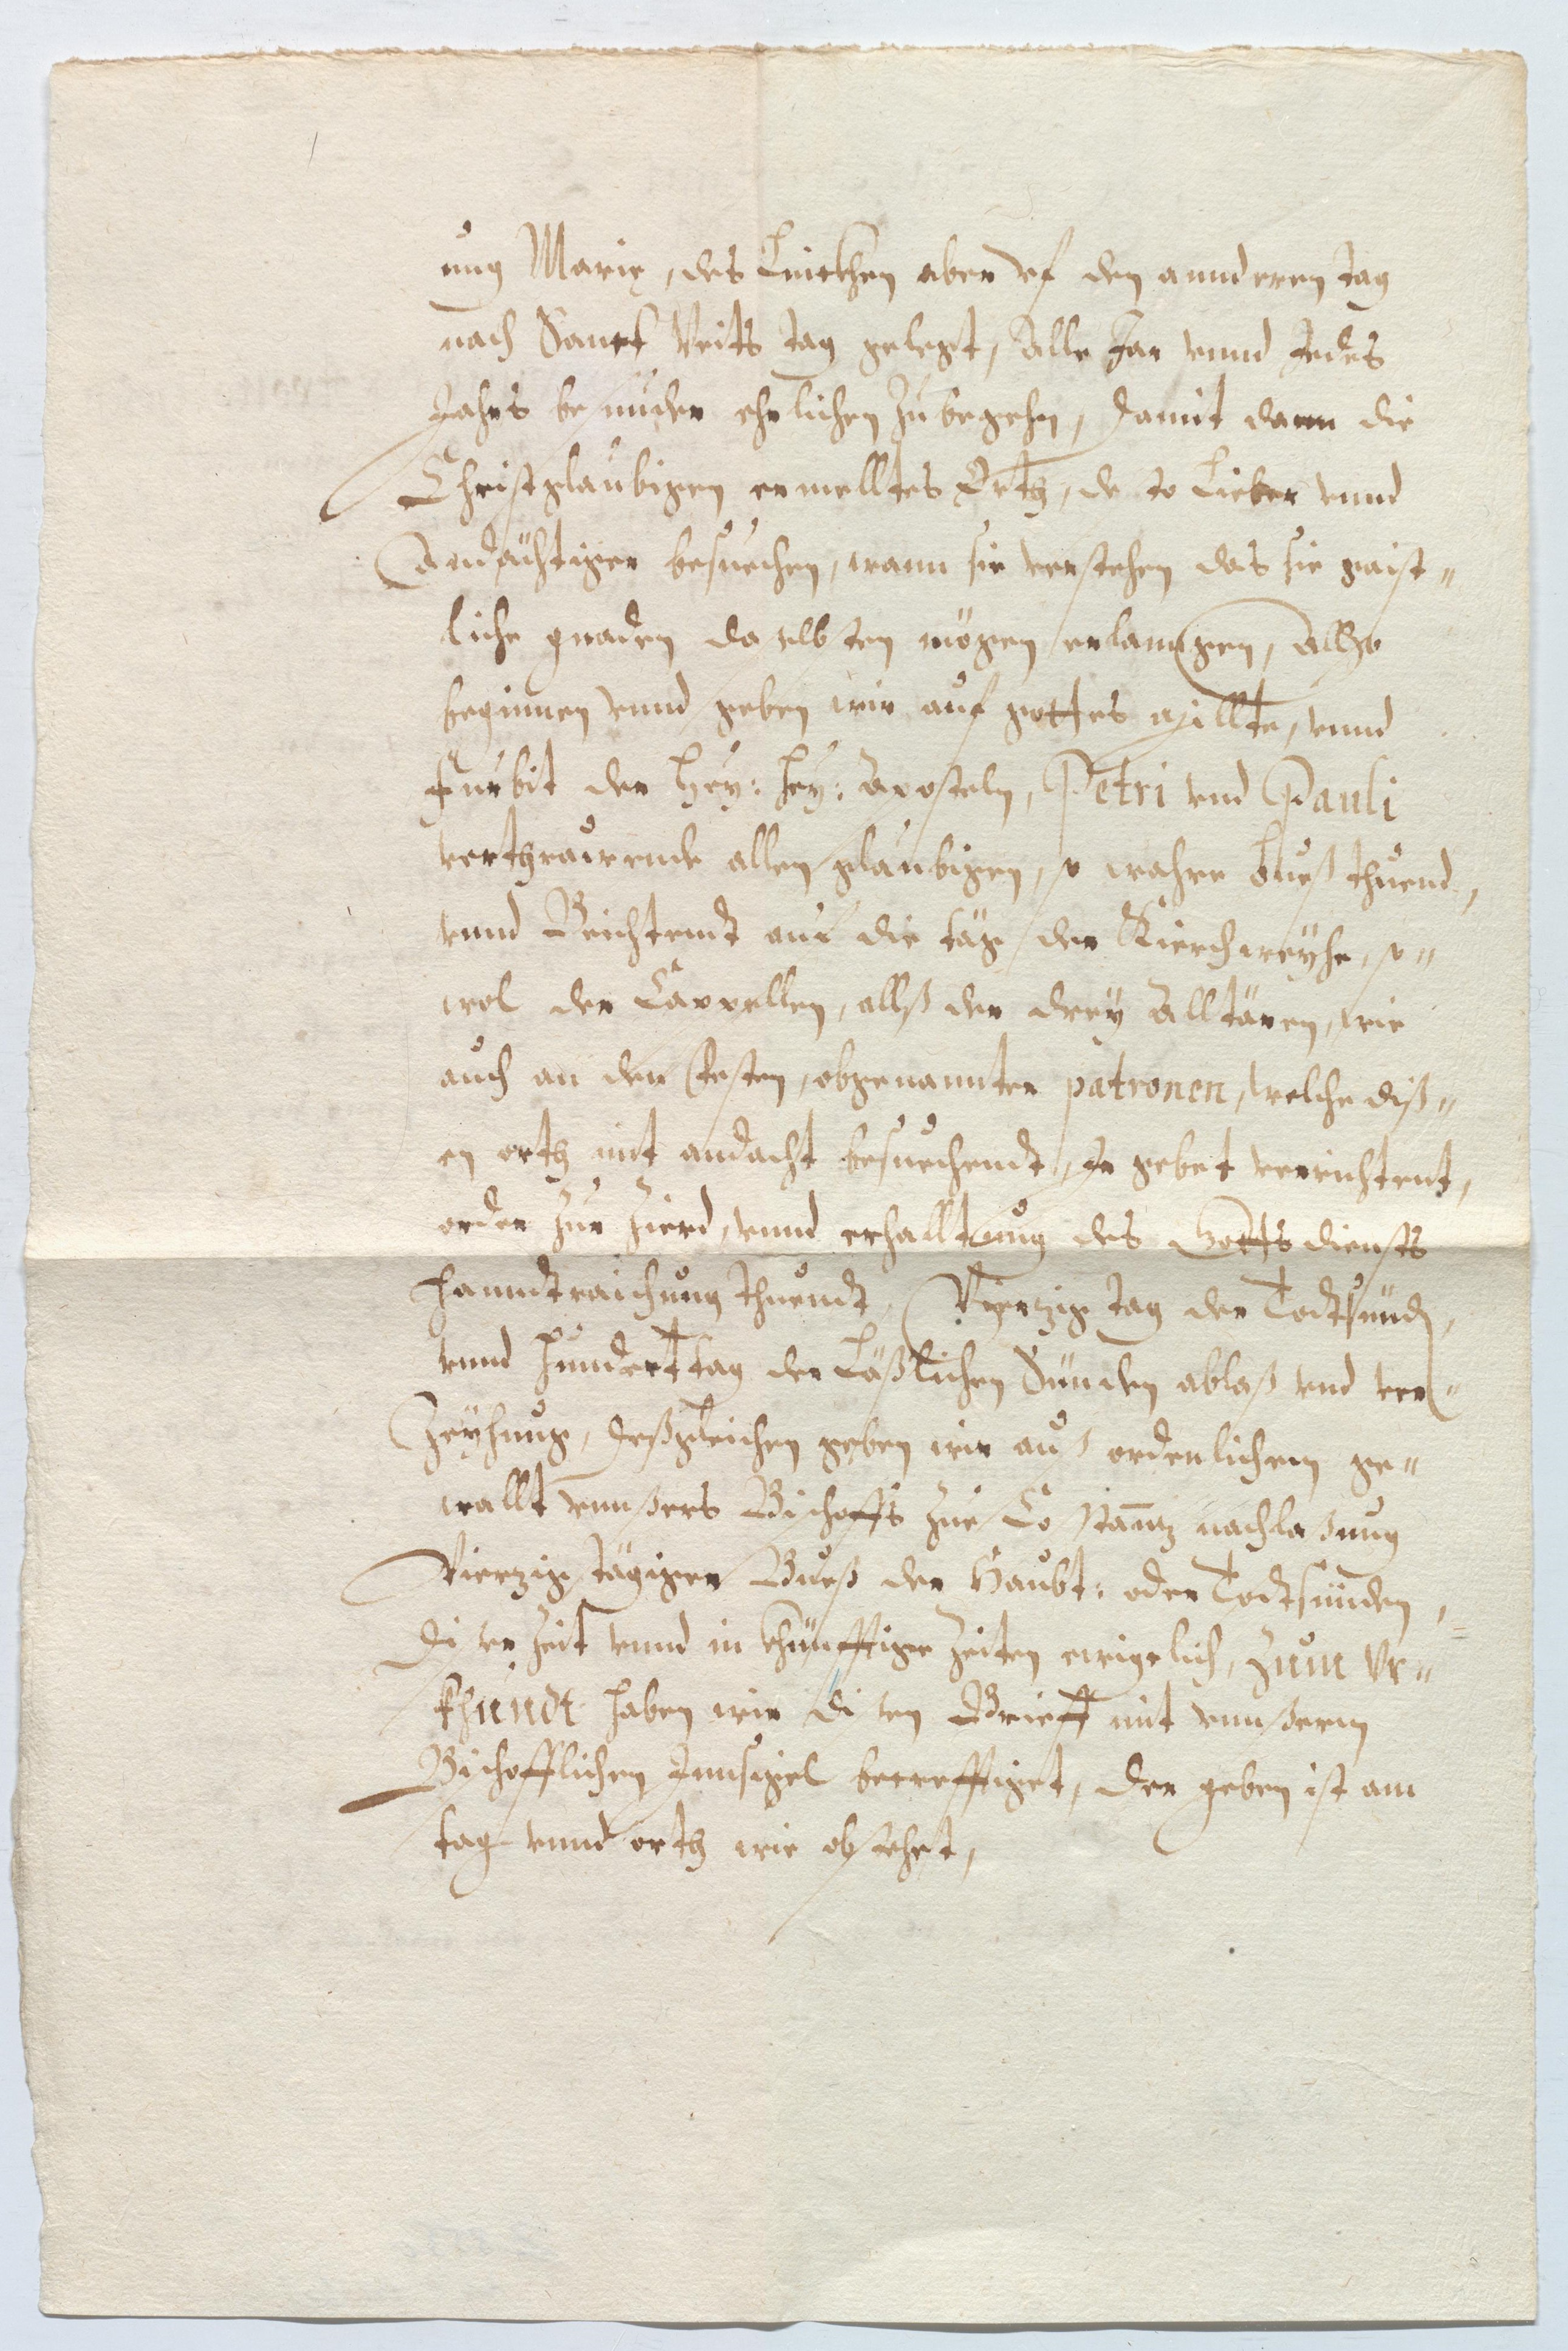 ung Marię, des Linckhen aber vf den annderen tag
nach Sanct Veits tag gelegt, Alle Jar vnnd Jedes
Jahrs besunder ehrlichen zu begehn, Damit dann die
Christglaubigen ermelltes Orth, desto Lieber vnnd
Andächtiger besuechen, wann sie verstehen das sie gaist-
liche gnaden daselbsten mögen erlanngen, Allso
beginnen vnnd geben wir auf gottes millte, vnnd
Furbit der Hey: Hey: Aposteln, Petri vnd Pauli
verthrauwende allen glaubigen, so wahre bueß thuend,
vnnd Beichtendt auf die täg der Kierchweyhe, so-
wol der Cappellen, allß der drey Alltären, wie
auch an den Festen, obgenannter patronen, welche diß-
en orth mit andacht besuechendt, Ir gebet verrichtent,
oder zur zierd, vnnd erhalltung des Gottsdiensts
hanndtraichung thuendt, Vierzig tag der Todtsünd,
vnnd hundert tag der Läßlichen Sünden ablaß vnd ver-
Zeyhung, deßgleichen geben wir auß ordenlichem ge-
wallt vnnßers Bischoffs zue Costanntz nachlaßung
Vierzig tägiger Bueß der Haubt: oder Todtsünden,
diser Zeit vnnd in khünfftige Zeiten ewigelich, Zum Vr-
khundt haben wir disen Brieff mit vnnßerm
Bischofflichen Innsigel becrefftiget, der geben ist am
tag vnnd orth wie obstehet,